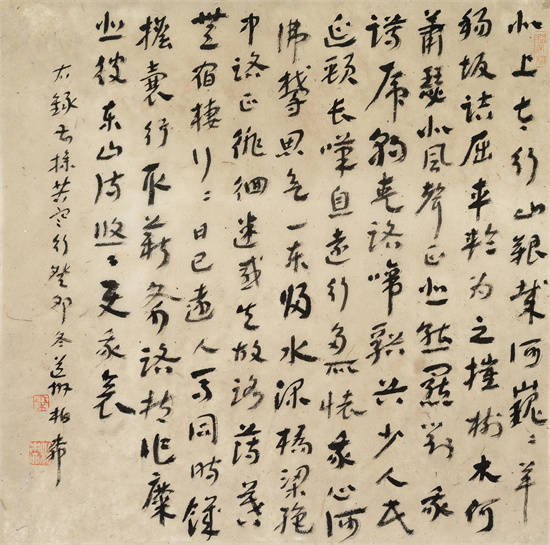 北上太行山艱哉何巍〻羊
腸坂詰屈車輪為之摧樹木何
蕭瑟北風聲正悲熊羆對我
蹲虎豹夾路啼谿谷少人民
延頸長嘆息遠行多所懷我心何
怫鬱思欲一東歸水深橋梁絕
中路正徘徊迷惑失故路薄暮
無宿棲行〻日已遠人馬同時饑
擔囊行取薪斧持作糜
悲彼東山詩悠〻使我哀
右錄苦寒行癸卯冬